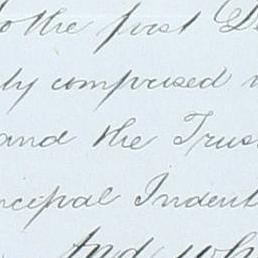 to the first
comprised
and the Trus
ncipal Indent
And wh